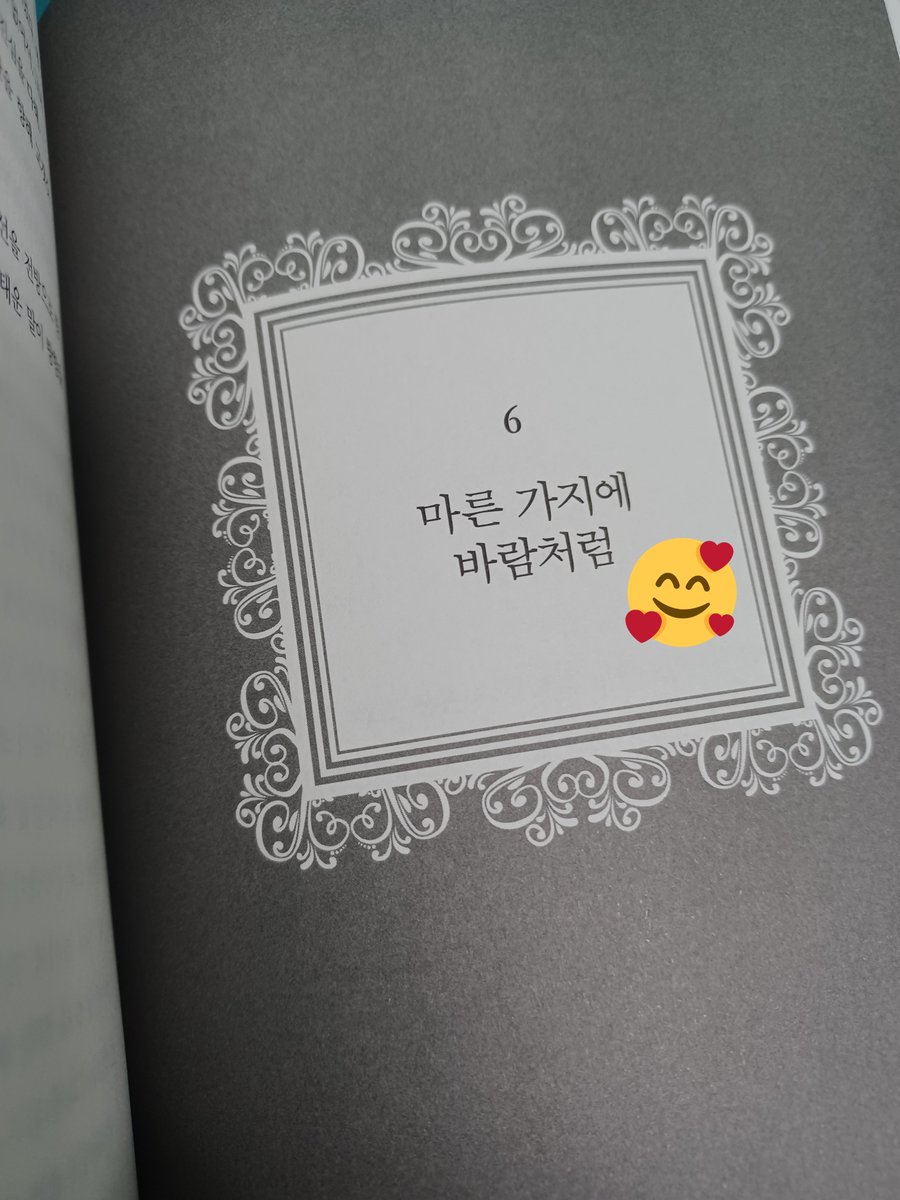 6
마른 가지에
바람처럼